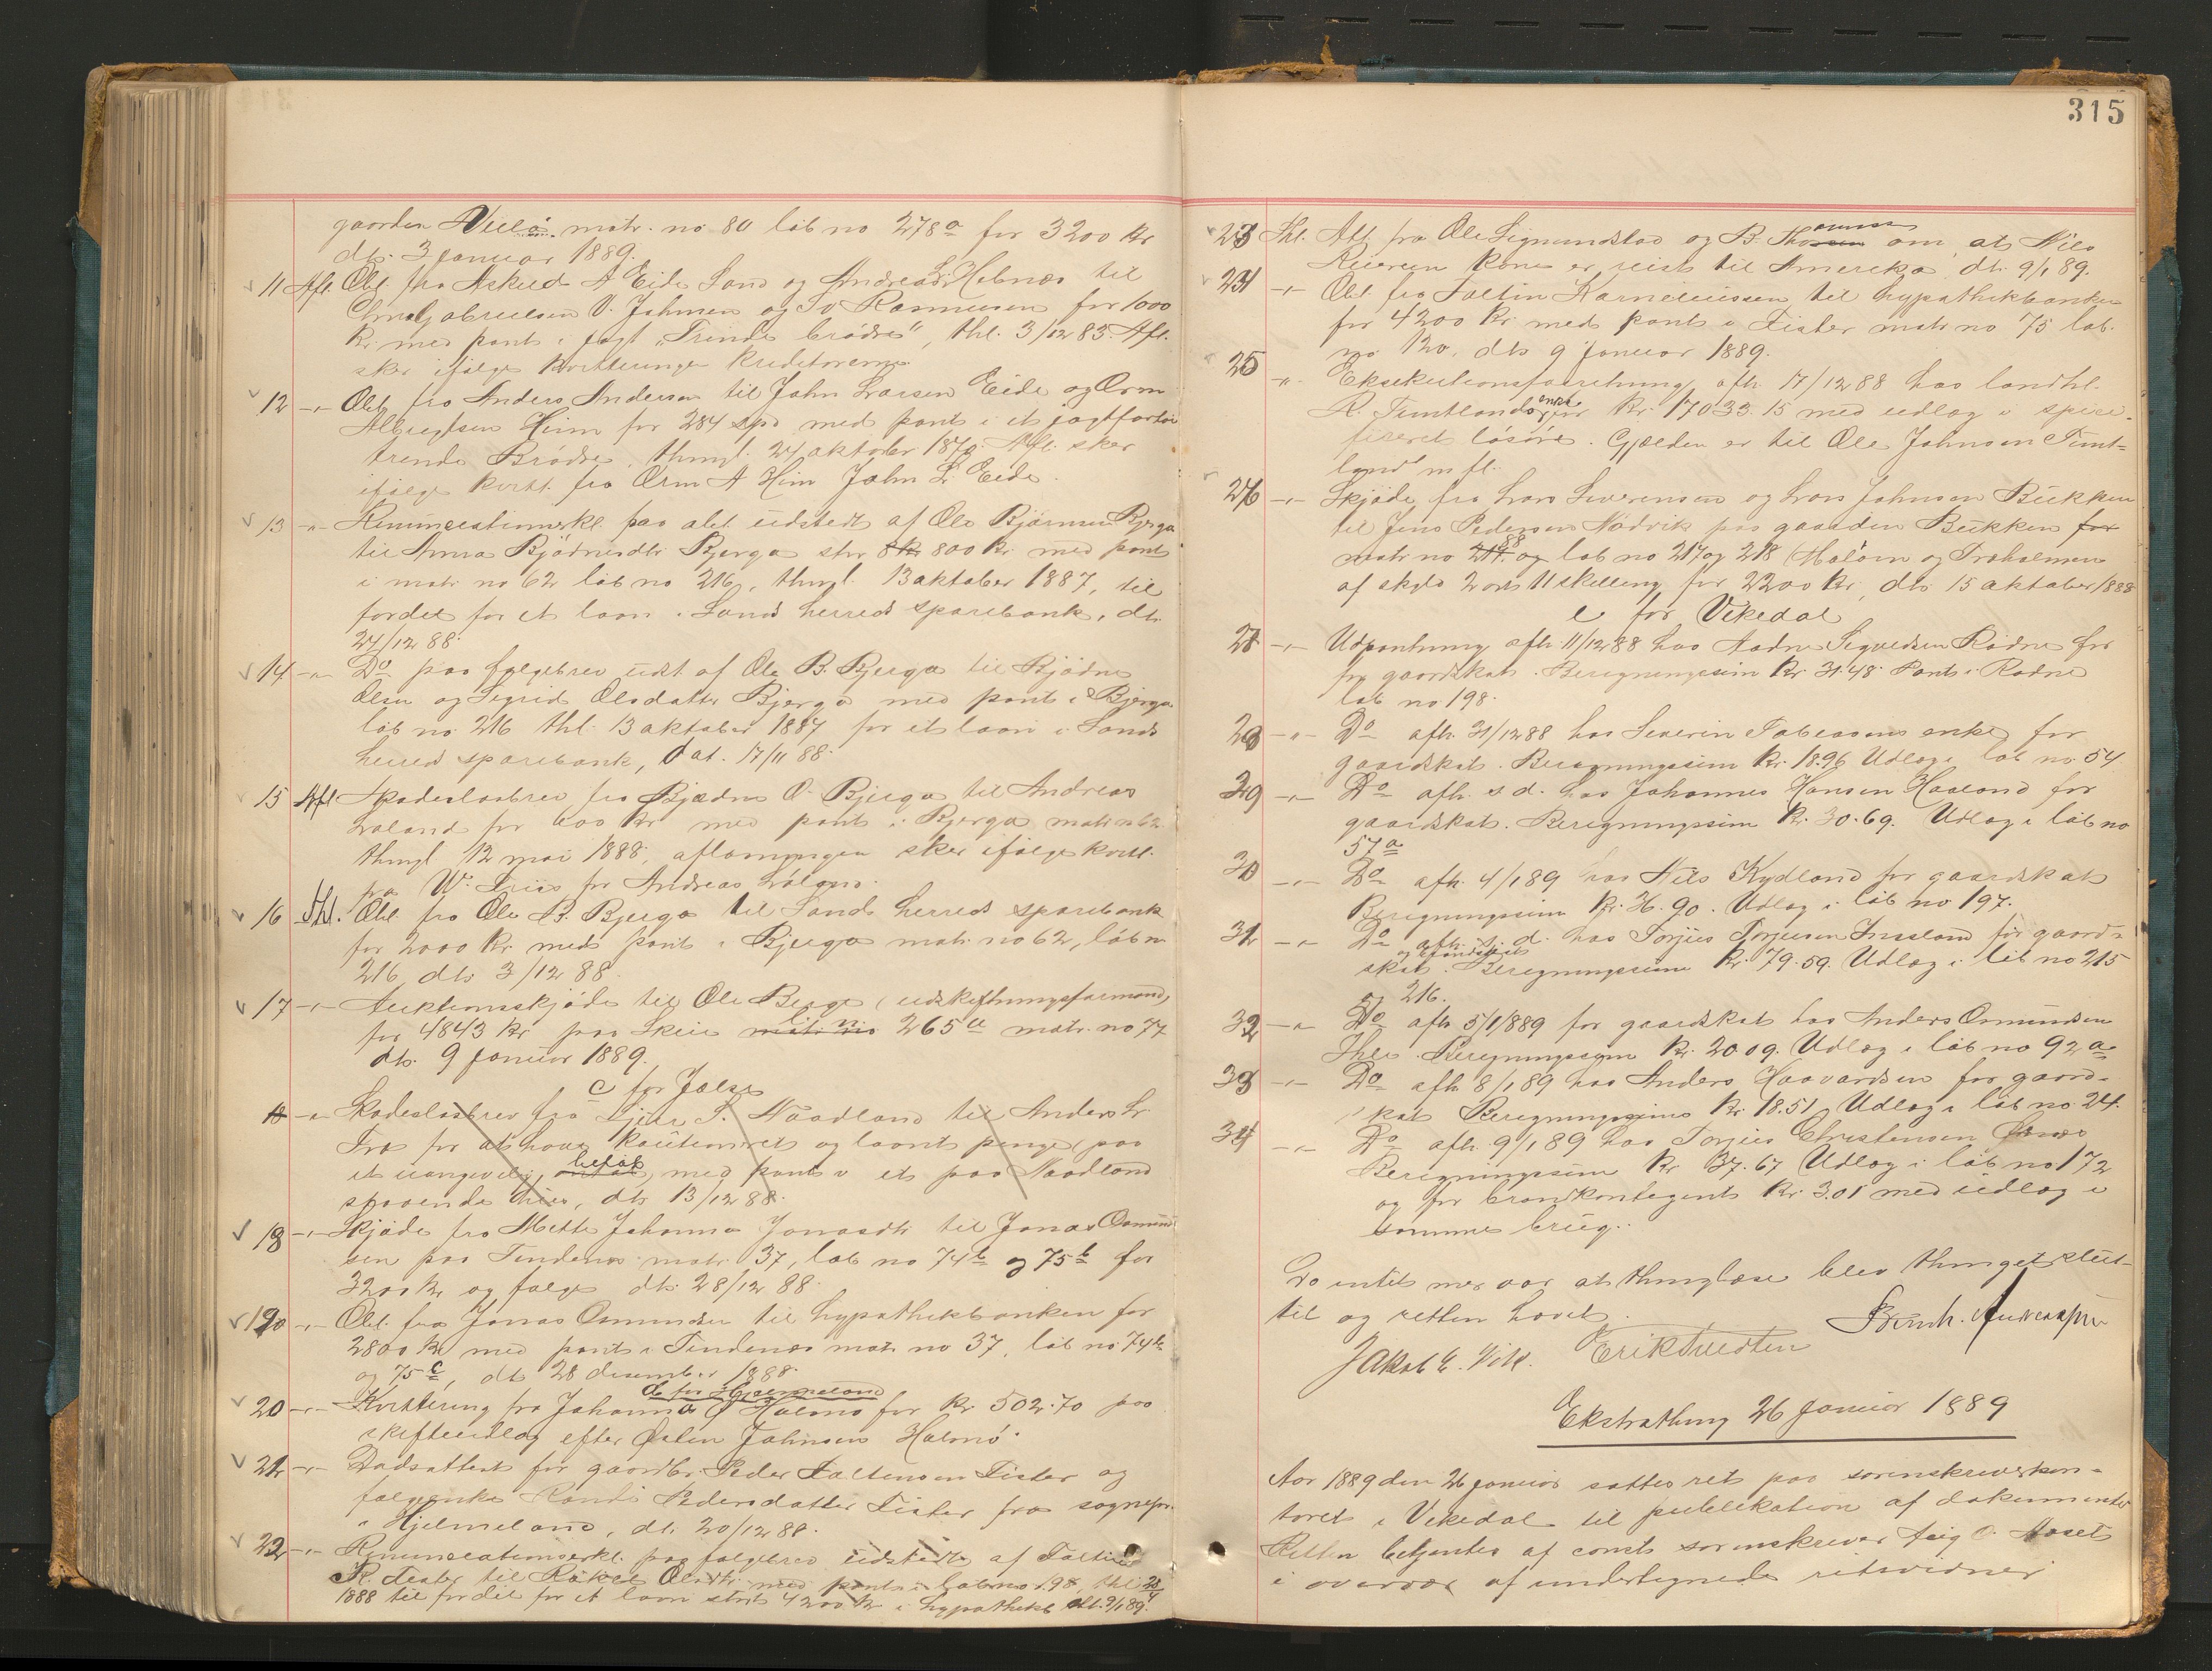 315
gaarden matr. no 80 løb no 278a for 3200 kr
dt. 3 januar 1889.
11 Afl. Obl. fra Askild A Eide Sand og Andreas L. Hebnes til
Gabrielsen O. Johnsen og Sv Rasmussen for 1000
kr. med pant i jagt „Trende brødre", thl. 3/12 83. Afl.
sker ifølge kvitteringer kreditorerne
12 -"- Obl. fra Anders Andersen til John Larsen Eide og Orm
Albregtsen Heim for 284 spd med pant i et jagtfartøi
trende Brødre, thingl. 24 oktober 1870. Afl. sker
ifølge kvitt. fra Orm A Him John L. Eide.
13 -"- Renunciationserkl. paa obl. udstedt af Ole Bjørnsen Bjerga
til Anna Bjødnesdtr Bjerga stor 800 kr. med pant
i matr. no 62 løb no 216, thingl. 13 oktober 1887, til
fordel for et laan i Sands herreds sparebank, dt.
27/12 88.
14 -"- Do paa følgebrev udst af Ole B. Bjerga til Bjødne
Olsen og Sigrid Olsdatter Bjerga med pant i Bjerga
løb no 216 thl. 13 oktober 1887 for et laan i Sands
herreds sparebank, dat. 17/11 88.
15 Afl. Skadesløsbrev fra Bjødne O. Bjerga til Andreas
Løland for 600 kr med pant i Bjerga matr no 62
thingl 12 mai 1888, aflæsningen sker ifølge kvitt.
fra W. Friis for Andreas Løland.
16 Thl. Obl. fra Ole B. Bjerga til Sands herreds sparebank
for 2000 kr. med pant i Bjerga matr. no 62, løb no
216, dt. 3/12 88.
17 -"- Auktionsskjøde til Ole Berge (udskiftningsformand)
for 4843 kr paa Skeie matr no løb n. 265a matr. no 77
dt. 9 januar 1889.
c for Jælse
18 -"- Skadesløsbrev fra T. Naadland til Anders Lr.
Tra for at have kautioneret og laant penge paa
et uangivelig beløb, med pant i et paa Naadland
staaende hus, dt. 13/12 88.
18 -"- Skjøde fra Mette Johanna Jonasdtr til Jonas Osmund
sen paa Tindenes matr. 37, løb no 74b og 75b for
3200 kr og følge dt. 28/12 88.
19 -"- Obl. fra Jonas Osmundsen til hypothekbanken for
2800 kr med pant i Tindenes matr no 37, løb no 74b
og 75c, dt 28 desember 1888.
d for Hjelmeland
20 -"- Kvittering fra Johanna J Halsnø for kr. 502.70 paa
skifteudlæg efter Østen Johnsen Halsnø.
21 -"- Dødsattest for gaardbr. Peder Taltensen Fister og
følgeenke Randi Pedersdatter Fister fra sognepr.
i Hjelmeland, dt. 20/12 88.
22 -"- Renunciationserkl. paa følgebrev udstedt af Tølties
K. Fister til Rakel Olsdtr. med pant i løb no 98, thl. 28/4
1888 til fordel for et laan stort 4200 kr i hypothekb dt. 9/1 89.
23 Thl. Att. fra Ole Sigmundstad og B. om at Nils
kone er reist til Amerika, dt. 9/1 89.
24 -"- Obl. fra Taltin Karneliussen til hypothekbanken
for 4200 kr med pant i Fister matr no 75 løb.
no 120, dt. 9 januar 1889.
25 -"- Eksekutionsforretning afh. 17/12 88 hos landhl.
R. Timtlands enke for kr. 17033.15 med udlæg i speci-
ficeret løsøre. Gjælden er til Ole Johnsen Timt-
land m fl.
26 -"- Skjøde fra Lars Severensen og Lars Johnsen Bukken
til Jens Pedersen Nødvik paa gaarden Bukken for
matr no 88 og løb no 217 og 218 (Maløen og Traholmen
af skyld 2 ort 11 skilling for 2200 kr, dt. 15 oktober 1888
e for Vikedal
27 -"- Udpantning afh 11/12 88 hos Aadne Sigvedsen Rødne for
for gaardskat. Beregningssum kr. 31.48. Pant i Rødne
løb no 198.
28 -"- Do afh. 31/12 88 hos Severin Tabiasens enke for
gaardskat. Beregningssum kr. 18.96 Udlæg i løb no 54
29 -"- Do afh. s d. hos Johannes Hansen Haaland for
gaardskat. Beregningssum kr. 30.69. Udlæg i løb no
57a
30 -"- Do afh. 4/1 89 hos Nils Kydland for gaardskat
Beregningssum kr. 90. Udlæg i løb no 197.
31 -"- Do afh. s. d. hos Torjus Torjusen Imsland for gaard-
skat. og brandskat Beregningssum kr. 79.59. Udlæg i løb no 215
og 216.
32 -"- Do afh 5/1 1889 for gaardskat hos Anders Osmundsen
Beregningssum kr. 20.09. Udlæg i løb no 92a
33 -"- Do afh 8/1 89 hos Anders Haavardsen for gaard-
skat Beregningssum kr. 18.51 Udlæg i løb no 24.
34 -"- Do afh. 9/1 89 hos Torjus Christensen
Beregningssum kr 37.67 Udlæg i løb no 172
og for brandkontingent kr. 3.01 med udlæg i
samme brug.
Da intet mer var at thinglæse blev thinget slut-
til og retten hævet.
Jakob E. Vik. Erik Tuedten
Ekstrathing 26 januar 1889
Aar 1889 den 26 januar sattes ret paa sorenskriverkon-
toret i Vikedal til publikation af dokumenter
Retten betjentes af const. sorenskriver Aaset
i overvær af undertegnede retsvidner